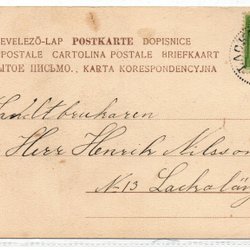 EVELEZŐ-LAP POSTKARTE DOPISNICE
POSTALE CARTOLINA POSTALE BRIEFKAART
ЫТОЕ ПИСЬМО., KARTA KORESPONDENCYJNA
Landtbrukaren
Herr Henrik Nilsson
No 13 Lackalän